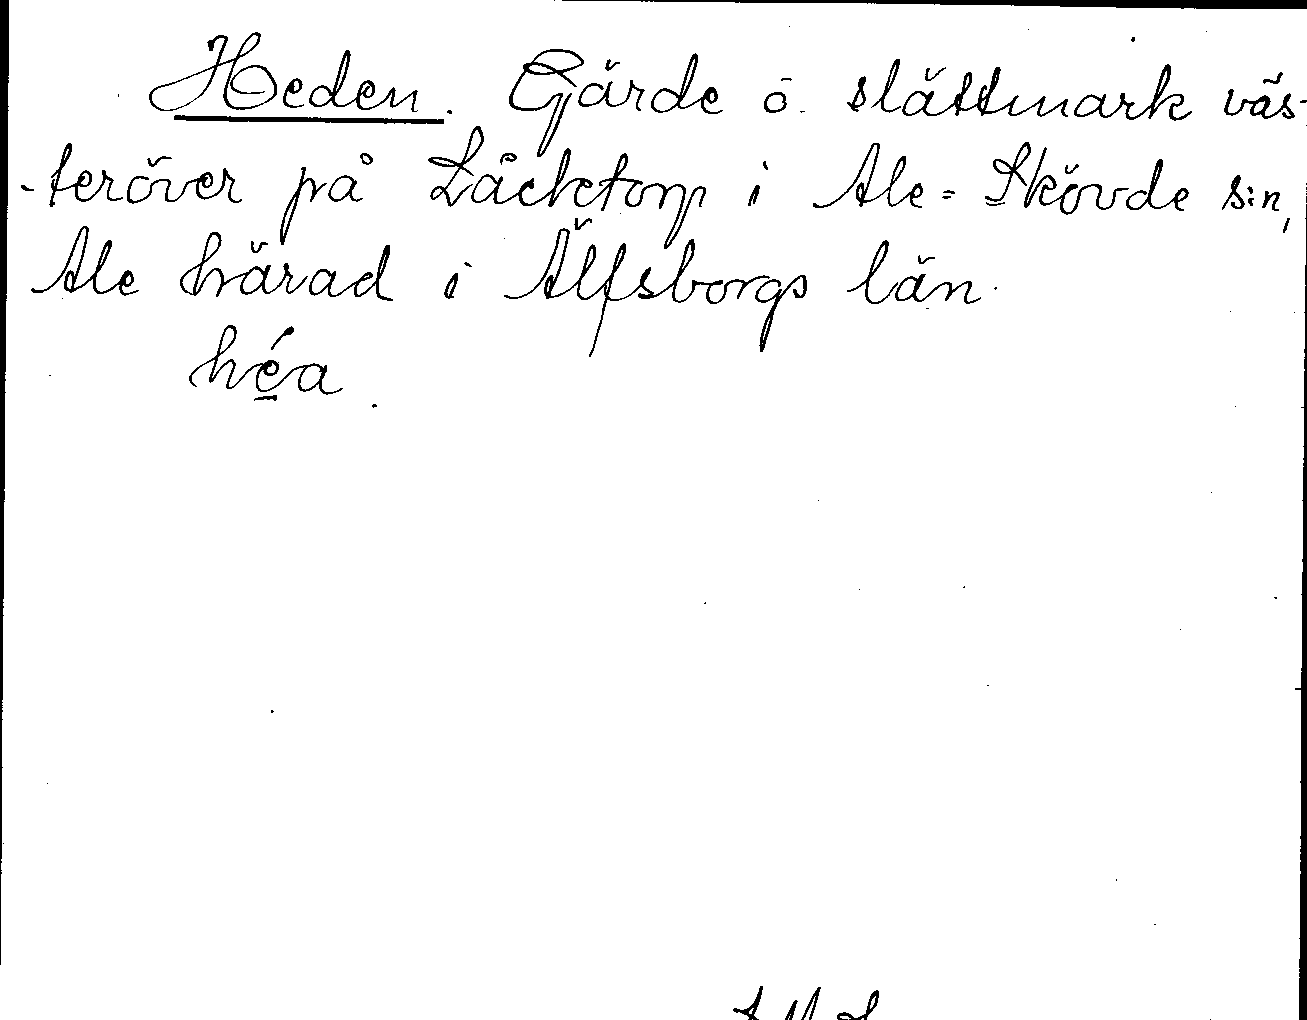 Heden. Gärde o. slättmark väs-
-teröver på Låcketorp i Ale-Skövde s:n,
Ale härad i Älfsborgs län.
héa